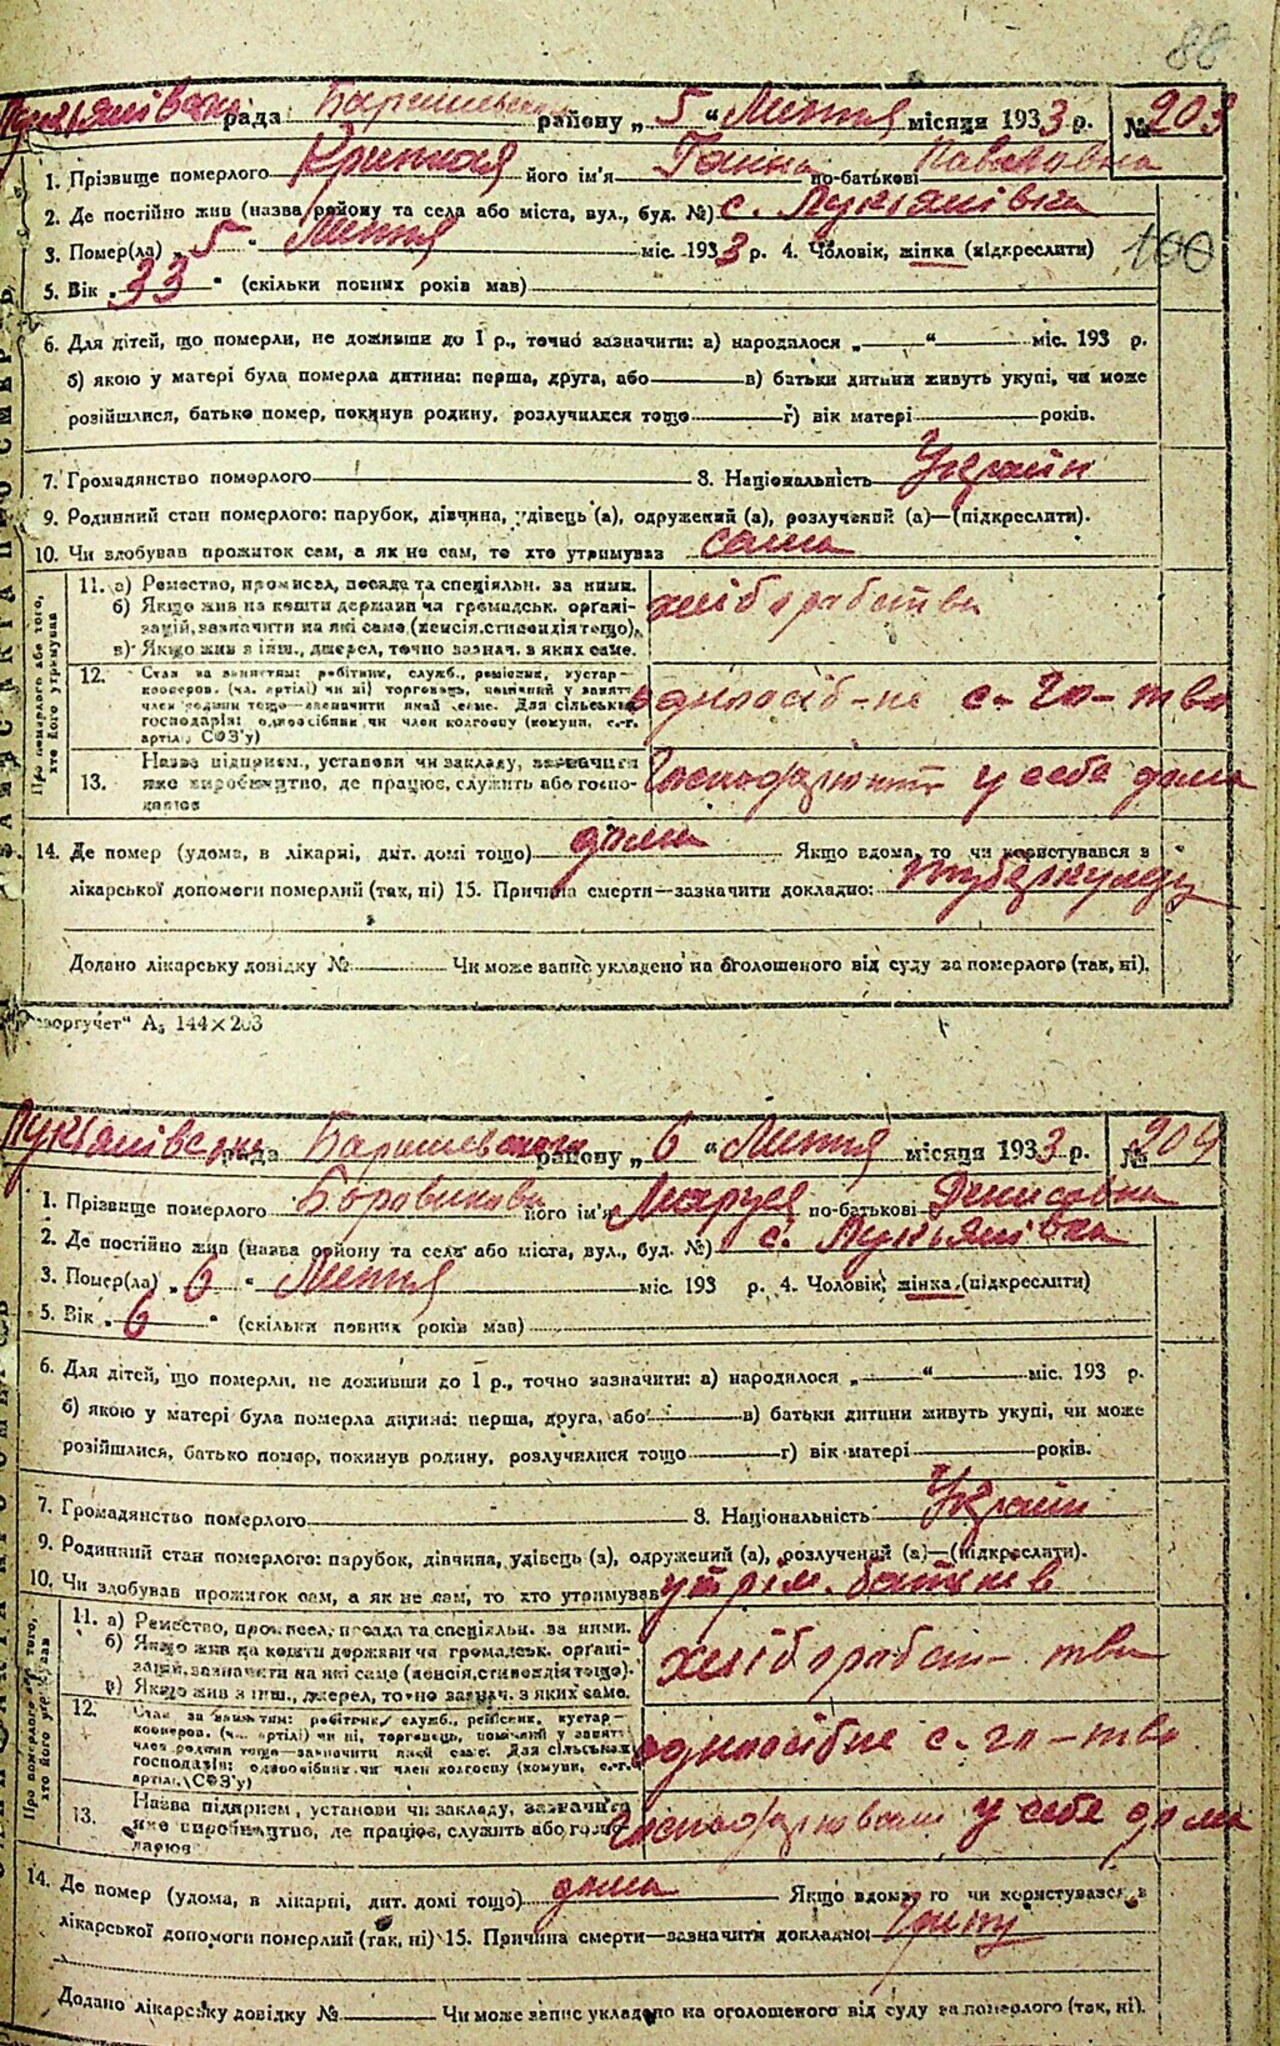 88
Лукьянівськ рада Баришевськ району „ 5 “ Липня місяця 1933 р. № 203
1. Прізвище померлого його ім'я Ганна по-батькові Павловна
2. Де постійно жив (назва району та села або міста, вул., буд. №) с. Лукьянівка
3. Помер(ла) „ 5 “ Липня міс. 1933 р. 4. Чоловік, жінка (підкреслити) 100
5. Вік „ 33 “ (скільки повних років мав)
6. Для дітей, що померли, не доживши до 1 р., точно зазначити: а) народилося „ “ міс. 193 р.
б) якою у матері була померла дитина: перша, друга, або в) батьки дитини живуть укупі, чи може
розійшлися, батько помер, покинув родину, розлучилися тощо г) вік матері років.
7. Громадянство померлого 8. Національність Україн
9. Родинний стан померлого: парубок, дівчина, удівець (а), одружений (а), розлучений (а)—(підкреслити).
10. Чи здобував прожиток сам, а як не сам, то хто утримував сама
Про померлого або того, хто його утримував
11. а) Ремество, промисел, посада та спеціяльн. за ними.
б) Якщо жив на кошти держави чи громадськ. органі-
зацій, зазначити на які саме (пенсія, стипендія тощо).
в) Якщо жив з інш., джерел, точно зазнач. з яких саме.
хліборобства
12. Стан за заняттям: робітник, служб., ремісник, кустар—
кооперов. (чл. артілі) чи ні) торговець, помічний у занятт
член родини тощо—зазначити який саме. Для сільськ.
господарів: одноосібник чи член колгоспу (комуни, с.-г.
артіл., СОЗ'у)
одноосіб-не с-го-тво
13. Назва підприєм., установи чи закладу, зазначити
яке виробництво, де працює, служить або госпо-
дарює
у себе дома
14. Де помер (удома, в лікарні, дит. домі тощо) дома Якщо вдома, то чи користувався в
лікарської допомоги померлий (так, ні) 15. Причина смерти—зазначити докладно: туберкульоз
Додано лікарську довідку № Чи може запис укладено на оголошеного від суду за померлого (так, ні).
воргучет“ А₅ 144×203
Лукьянівськ рада Баришевського району „ 6 “ Липня місяця 1933 р. № 204
1. Прізвище померлого Боровикова його ім'я Маруся по-батькові Денисовна
2. Де постійно жив (назва району та села або міста, вул., буд. №) с. Лукьянівка
3. Помер(ла) „ 6 “ Липня міс. 193 р. 4. Чоловік, жінка (підкреслити)
5. Вік „ 6 “ (скільки повних років мав)
6. Для дітей, що померли, не доживши до 1 р., точно зазначити: а) народилося „ “ міс. 193 р.
б) якою у матері була померла дитина: перша, друга, або в) батьки дитини живуть укупі, чи може
розійшлися, батько помер, покинув родину, розлучилися тощо г) вік матері років.
7. Громадянство померлого 8. Національність Україн
9. Родинний стан померлого: парубок, дівчина, удівець (а), одружений (а), розлучений (а)—(підкреслити).
10. Чи здобував прожиток сам, а як не сам, то хто утримував утрим. батьків
Про померлого або того, хто його утримував
11. а) Ремество, промисел, посада та спеціяльн. за ними.
б) Якщо жив на кошти держави чи громадськ. органі-
зацій, зазначити на які саме (пенсія, стипендія тощо).
в) Якщо жив з інш., джерел, точно зазнач. з яких саме.
хліборобст-тва
12. Стан за заняттям: робітник, служб., ремісник, кустар—
кооперов. (чл. артілі) чи ні, торговець, помічний у занятт
член родини тощо—зазначити який саме. Для сільськ.
господарів: одноосібник чи член колгоспу (комуни, с.-г.
артіл., СОЗ'у)
одноосібне с-го-тво
13. Назва підприєм., установи чи закладу, зазначити
яке виробництво, де працює, служить або госпо-
дарює
у себе дома
14. Де помер (удома, в лікарні, дит. домі тощо) дома Якщо вдома, то чи користувався в
лікарської допомоги померлий (так, ні) 15. Причина смерти—зазначити докладно:
Додано лікарську довідку № Чи може запис укладено на оголошеного від суду за померлого (так, ні).